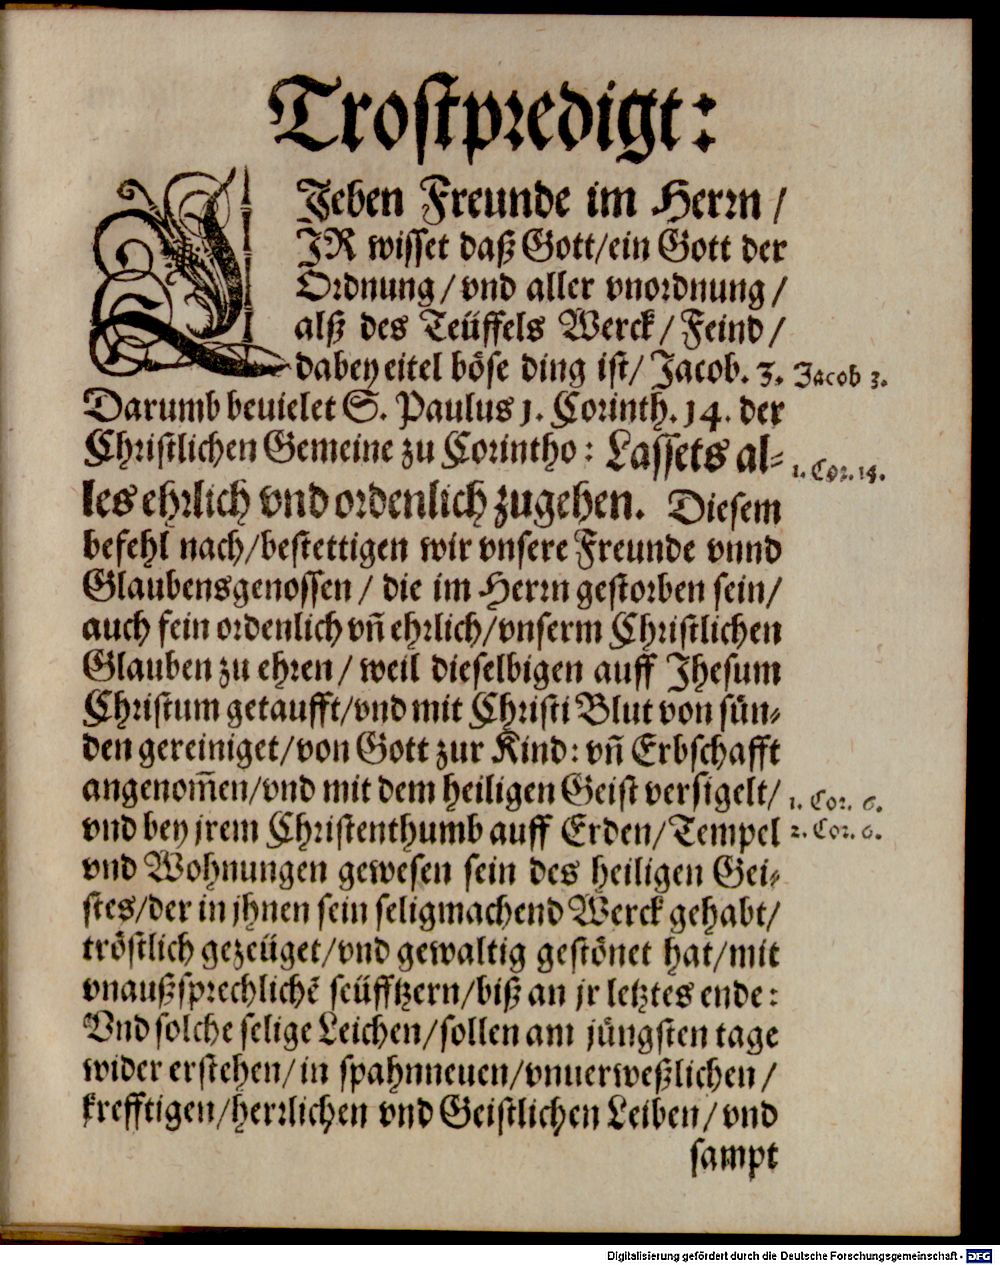 Trostpredigt:
LJeben Freunde im Herrn /
JR wisset daß Gott/ein Gott der
Ordnung/vnd aller vnordnung/
alß des Teüffels Werck/Feind/
dabey eitel böse ding ist/ Jacob. 3. Jacob 3.
Darumb beuielet S. Paulus 1. Corinth. 14. der
Christlichen Gemeine zu Corintho: Lassets al-
1. Cor. 14.
les ehrlich vnd ordenlich zugehen. Diesem
befehl nach/bestettigen wir vnsere Freunde vnnd
Glaubensgenossen/ die im Herrn gestorben sein/
auch fein ordenlich vñ ehrlich/vnserm Christlichen
Glauben zu ehren/ weil dieselbigen auff Jhesum
Christum getaufft/vnd mit Christi Blut von sün-
den gereiniget/von Gott zur Kind: vñ Erbschafft
angenom̃en/vnd mit dem heiligen Geist versigelt/ 1. Cor. 6.
vnd bey jrem Christenthumb auff Erden/Tempel 2. Cor. 6.
vnd Wohnungen gewesen sein des heiligen Gei-
stes/der in jhnen sein seligmachend Werck gehabt/
tröstlich gezeüget/vnd gewaltig gestönet hat/mit
vnaußsprechlichẽ seüfftzern/biß an jr letztes ende:
Vnd solche selige Leichen/sollen am jüngsten tage
wider erstehen/in spahnneuen/vnuerweßlichen/
krefftigen/herrlichen vnd Geistlichen Leiben/vnd
sampt
Digitalisierung gefördert durch die Deutsche Forschungsgemeinschaft - DFG